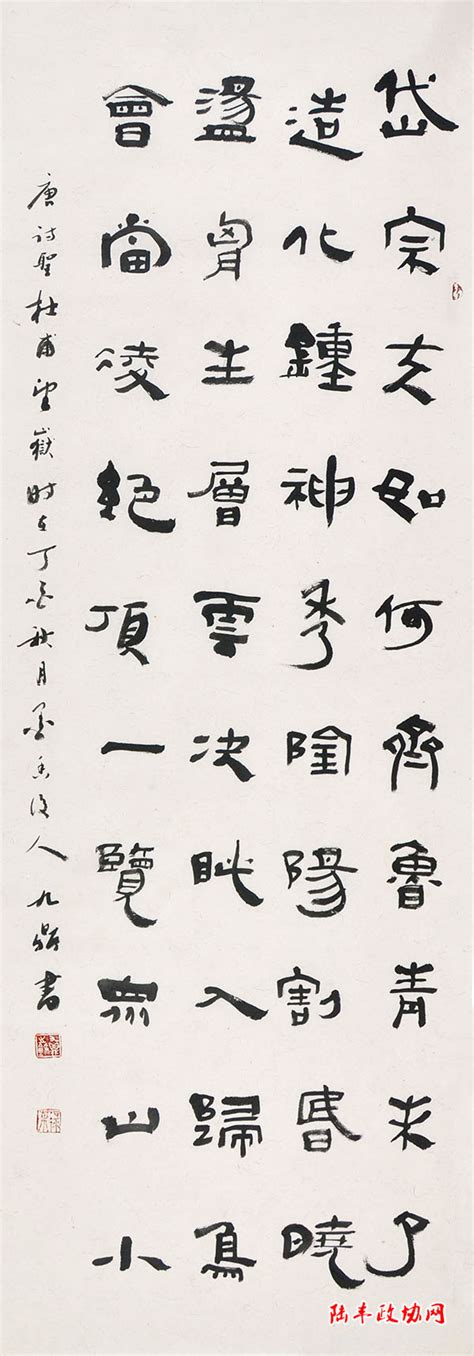 岱宗夫如何齊魯青未了
造化鍾神秀陰陽割昏曉
盪胷生層雲决眦入歸鳥
會當凌絕頂一覽眾山小
唐詩聖杜甫望嶽時在丁秋月人九鼎書
陆丰政协网